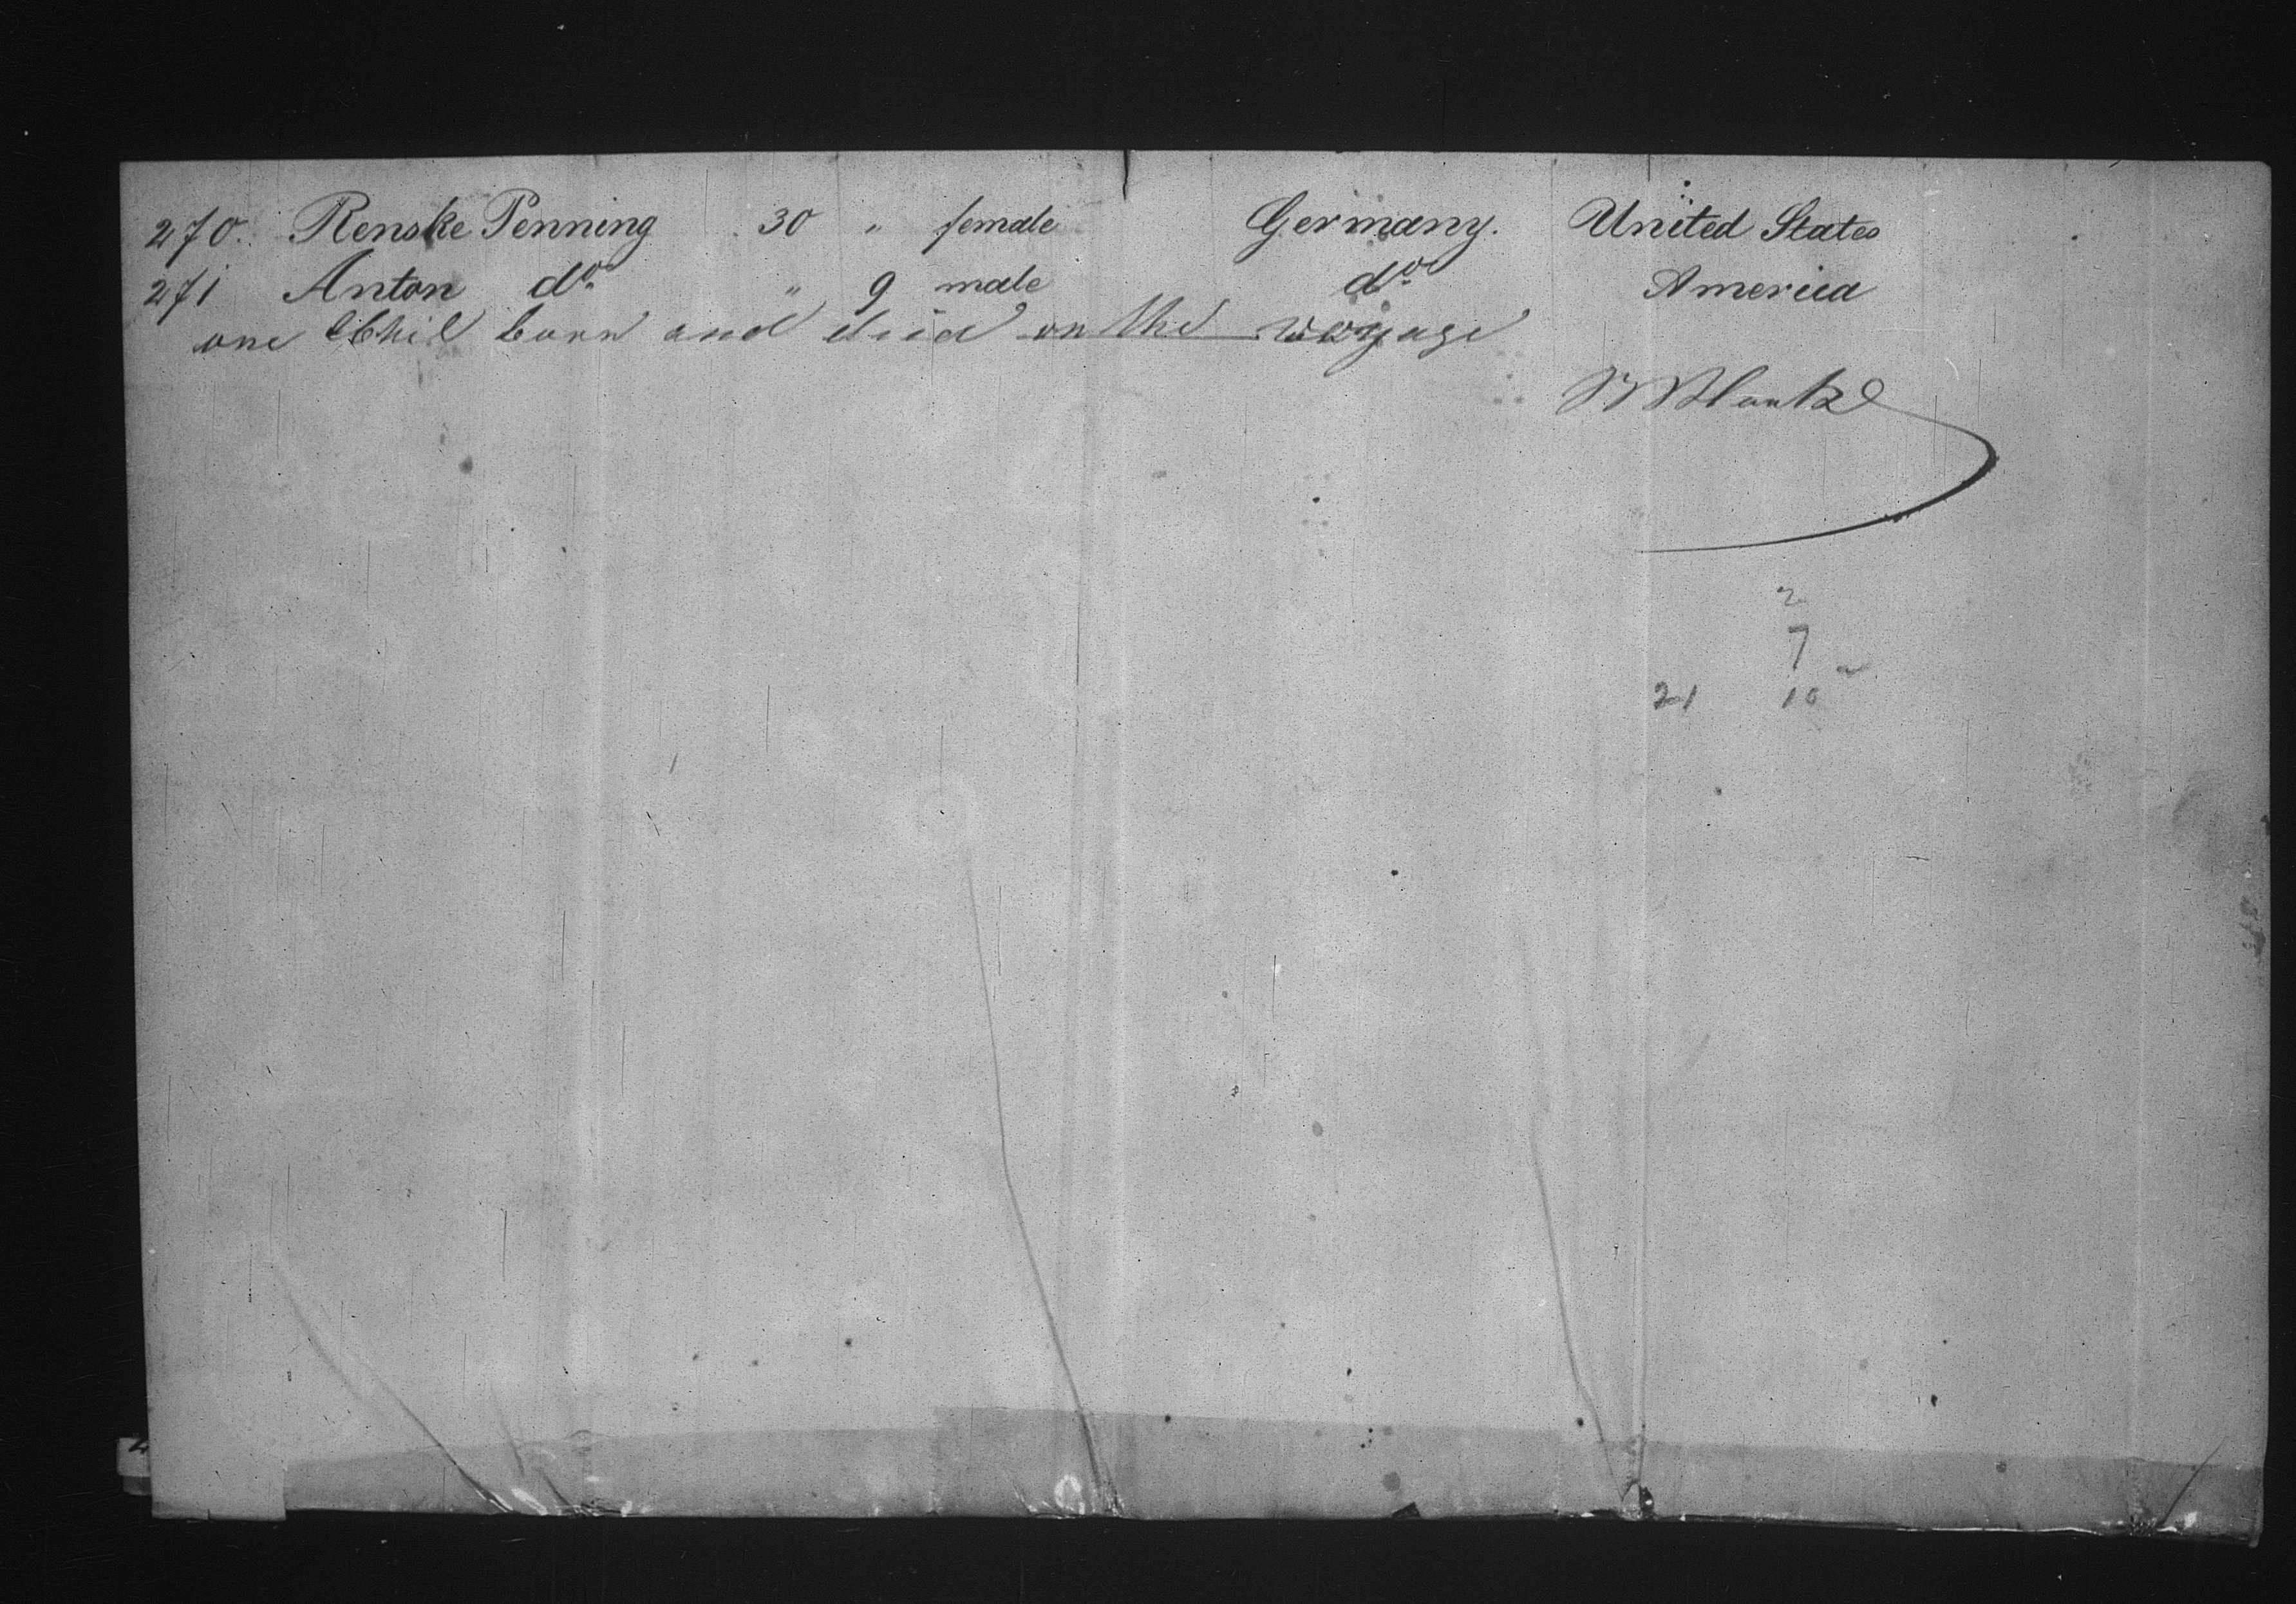 270. Renske Penning 30 " female Germany. United States
271 Anton do. " 9 male do. America
one Chil born and died on the voyage
2
7
21 10